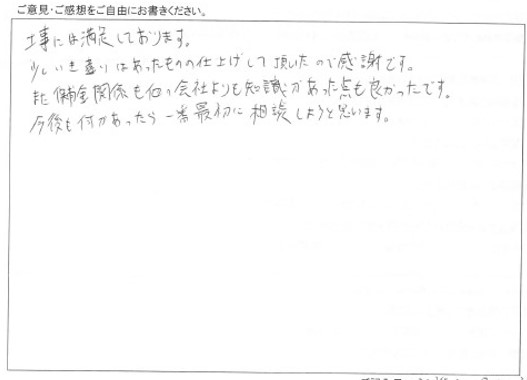 ご意見・ご感想をご自由にお書きください。
工事には満足しております。
少しいき違いはあったものの仕上げして頂いたので感謝です。
また保金関係も他の会社よりも知識があった点も良かったです。
今後も何かあったら一番最初に相談しようと思います。